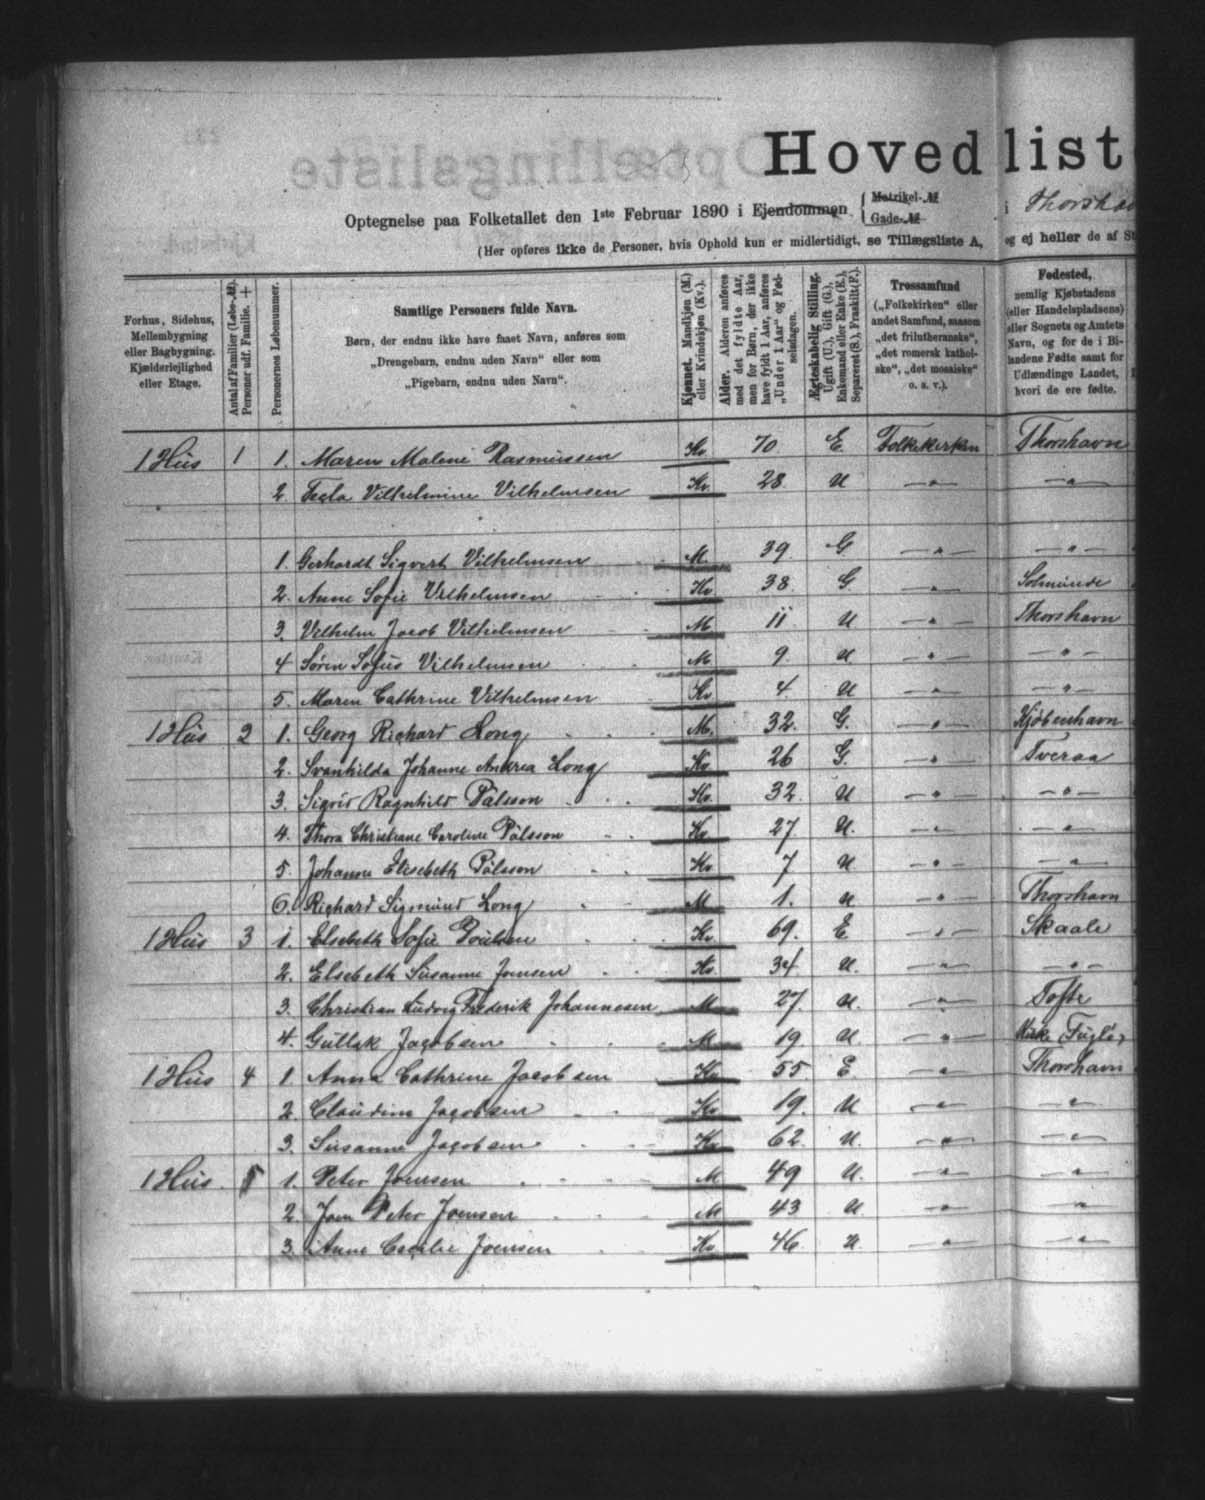 Hovedlist
Optegnelse paa Folketallet den 1ste Februar 1890 i Ejendommen { Matrikel-№ Gade-№ i Thorshav
(Her opføres ikke de Personer, hvis Ophold kun er midlertidigt, se Tillægsliste A, og ej heller de af St
Forhus, Sidehus, Mellembygning eller Bagbygning. Kjælderleilighed eller Etage.
Antal af Familier (Løbe-№). Personer udf. Familie. +
Personernes Løbenummer.
Samtlige Personers fulde Navn.
Børn, der endnu ikke have faaet Navn, anføres som
„Drengebarn, endnu uden Navn“ eller som
„Pigebarn, endnu uden Navn“.
Kjønnet. Mandkjøn (M.) eller Kvindekjøn (Kv.).
Alder. Alderen anføres med det fyldte Aar, men for Børn, der ikke have fyldt 1 Aar, anføres „Under 1 Aar“ og Fødselsdagen.
Ægteskabelig Stilling. Ugift (U.), Gift (G.), Enkemand eller Enke (E.), Separeret (S.), Fraskilt (F.).
Trossamfund („Folkekirken“ eller andet Samfund, saasom „det frilutheranske“, „det romersk katholske“, „det mosaiske“ o. s. v.).
Fødested, nemlig Kjøbstadens (eller Handelspladsens) eller Sognets og Amtets Navn, og for de i Bilandene Fødte samt for Udlændinge Landet, hvori de ere fødte.
1 Hüs 1 1. Maren Malene Rasmüssen Kv. 70 E. Folkekirken Thorshavn
2. Tegla Vilhelmine Vilhelmsen Kv. 28 U —„— —„—
1. Gerhardt Sigvert Vilhelmsen M. 39 G —„— —„—
2. Anne Sofie Vilhelmsen Kv 38 G. —„— Solmünde
3. Vilhelm Jacob Vilhelmsen M. 11 U —„— Thorshavn
4 Søren Sofüs Vilhelmsen M. 9. U —„— —„—
5. Maren Cathrine Vilhelmsen Kv 4 U —„— —„—
1 Hüs 2 1. Georg Richard Long M. 32. G. —„— Kjøbenhavn
2. Svanhilda Johanne Andrea Long Kv 26 G. —„— Tveraa
3. Sigrid Ragnhild Pálsson Kv. 32 U —„— —„—
4. Thora Christiane Caroline Pálsson Kv 27 U. —„— —„—
5. Johanne Elisebeth Pálsson Kv 7 U. —„— —„—
6. Richard Sigmünd Long M 1. U —„— Thorshavn
1 Hüs 3 1. Elsebeth Sofie Poülsen Kv. 69. E —„— Skaale
2. Elsebeth Süsanne Joensen Kv. 34 U. —„— —„—
3. Christian Ludvig Frederik Johannesen M 27. U. —„— Tofte
4. Güttek Jacobsen M 19 U —„— Kirke (Fuglø)
1 Hüs 4 1. Anna Cathrine Jacobsen Kv 55. E. —„— Thorshavn
2. Claüdine Jacobsen Kv. 19. U —„— —„—
3. Süsanne Jacobsen Kv 62 U. —„— —„—
1 Hüs. 5 1. Peter Joensen M 49 U. —„— —„—
2. Joen Peter Joensen M 43 U. —„— —„—
3. Anne Cecilie Joensen Kv. 46. U. —„— —„—